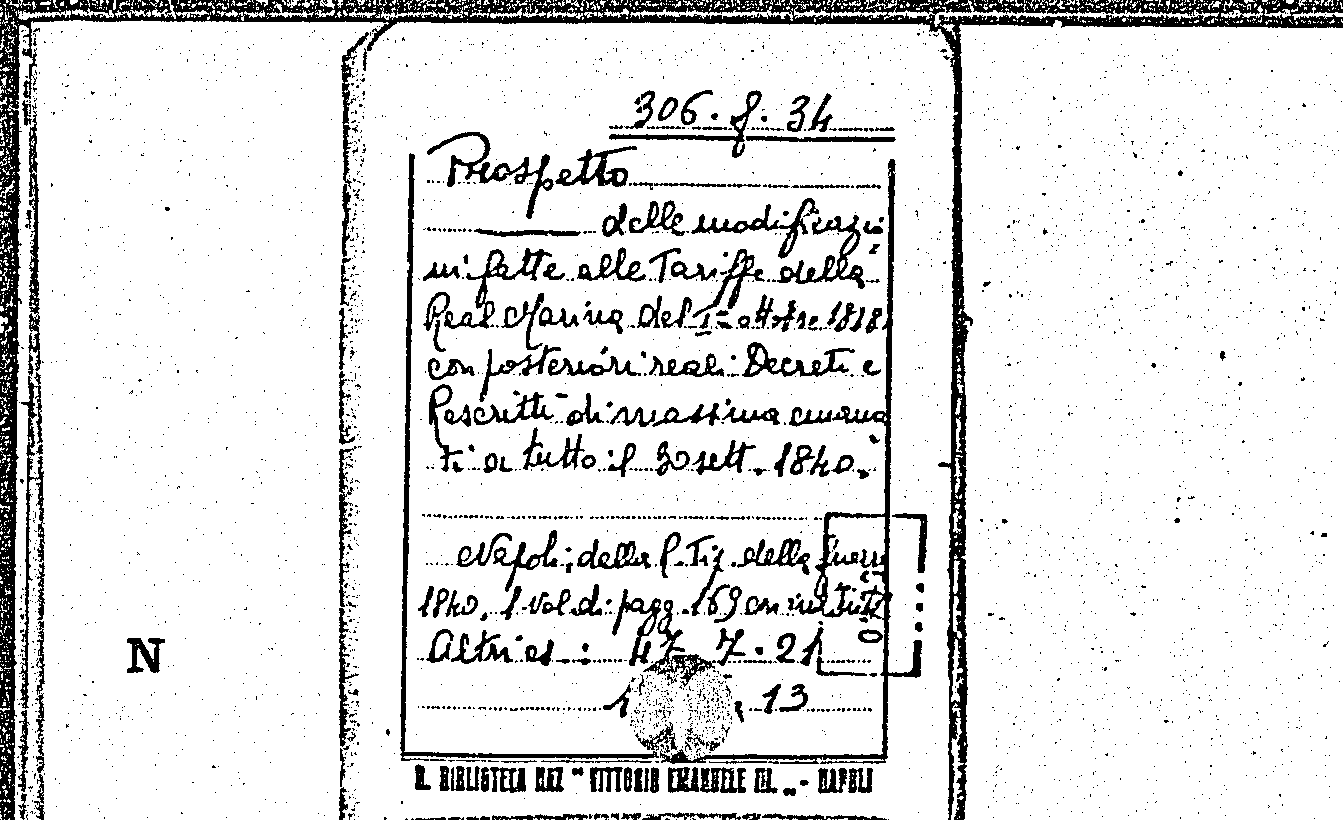 306. f. 34
Prospetto
delle modificazio
ni fatte alle Tariffe della
Real Marina del 1= ottbre 1818
con posteriori reali Decreti e
Rescritti di massima emana
ti a tutto il 30 sett. 1840.
Napoli, dalla R. Tip. della guerra
1840. 1 vol. di pagg. 169
Altri es.: 47 7. 21
13
N
R. BIBLIOTECA NAZ " VITTORIO EMANUELE III. „ - NAPOLI